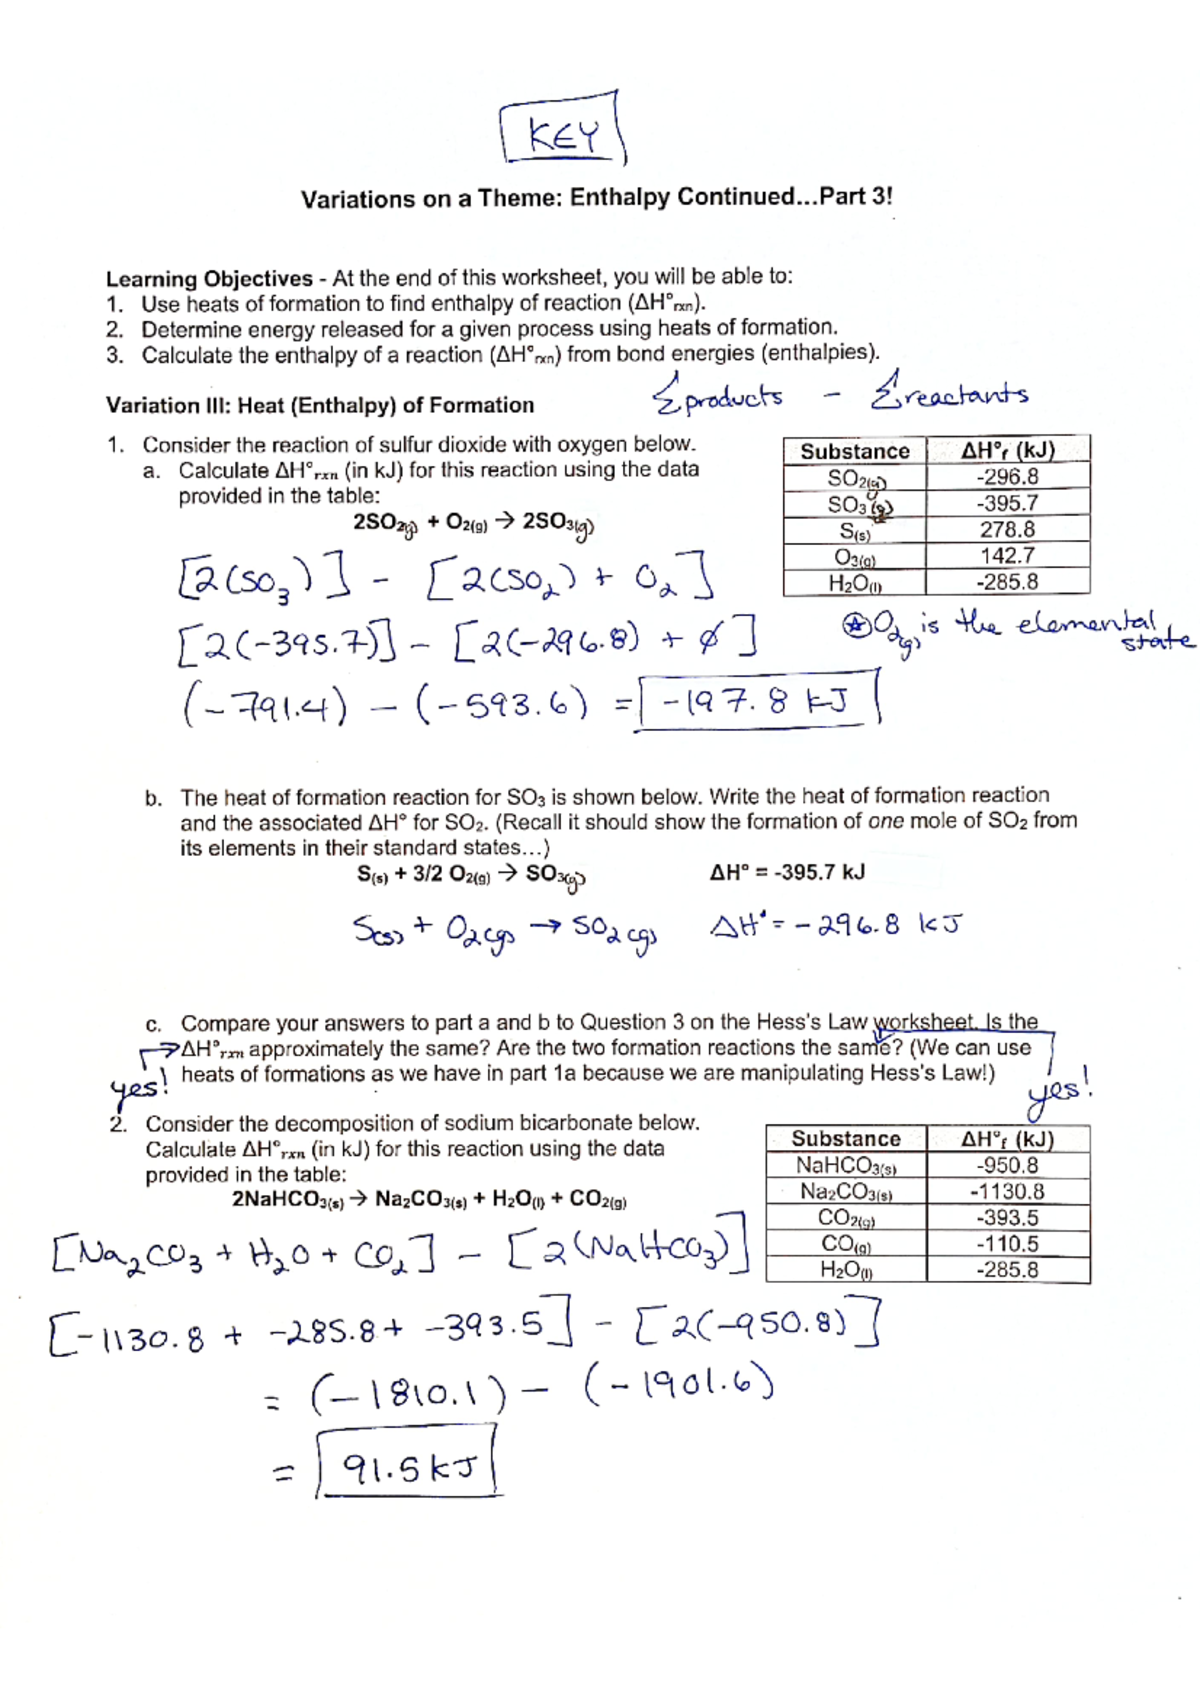 KEY
Variations on a Theme: Enthalpy Continued...Part 3!
Learning Objectives - At the end of this worksheet, you will be able to:
1. Use heats of formation to find enthalpy of reaction (ΔH°rxn).
2. Determine energy released for a given process using heats of formation.
3. Calculate the enthalpy of a reaction (ΔH°rxn) from bond energies (enthalpies).
Σproducts - Σreactants
Variation III: Heat (Enthalpy) of Formation
1. Consider the reaction of sulfur dioxide with oxygen below.
a. Calculate ΔH°rxn (in kJ) for this reaction using the data
provided in the table:
2SO2(g) + O2(g) → 2SO3(g)
Substance ΔH°f (kJ)
SO2(g) -296.8
SO3(g) -395.7
S(s) 278.8
O3(g) 142.7
H2O(l) -285.8
[2(SO3)] - [2(SO2) + O2]
[2(-395.7)] - [2(-296.8) + ∅]
⍟O2(g) is the elemental
state
(-791.4) - (-593.6) = -197.8 kJ
b. The heat of formation reaction for SO3 is shown below. Write the heat of formation reaction
and the associated ΔH° for SO2. (Recall it should show the formation of one mole of SO2 from
its elements in their standard states...)
S(s) + 3/2 O2(g) → SO3(g) ΔH° = -395.7 kJ
S(s) + O2(g) → SO2(g) ΔH° = -296.8 kJ
c. Compare your answers to part a and b to Question 3 on the Hess's Law worksheet. Is the
ΔH°rxn approximately the same? Are the two formation reactions the same? (We can use
heats of formations as we have in part 1a because we are manipulating Hess's Law!)
yes! yes!
2. Consider the decomposition of sodium bicarbonate below.
Calculate ΔH°rxn (in kJ) for this reaction using the data
provided in the table:
2NaHCO3(s) → Na2CO3(s) + H2O(l) + CO2(g)
Substance ΔH°f (kJ)
NaHCO3(s) -950.8
Na2CO3(s) -1130.8
CO2(g) -393.5
CO(g) -110.5
H2O(l) -285.8
[Na2CO3 + H2O + CO2] - [2(NaHCO3)]
[-1130.8 + -285.8 + -393.5] - [2(-950.8)]
= (-1810.1) - (-1901.6)
= 91.5 kJ